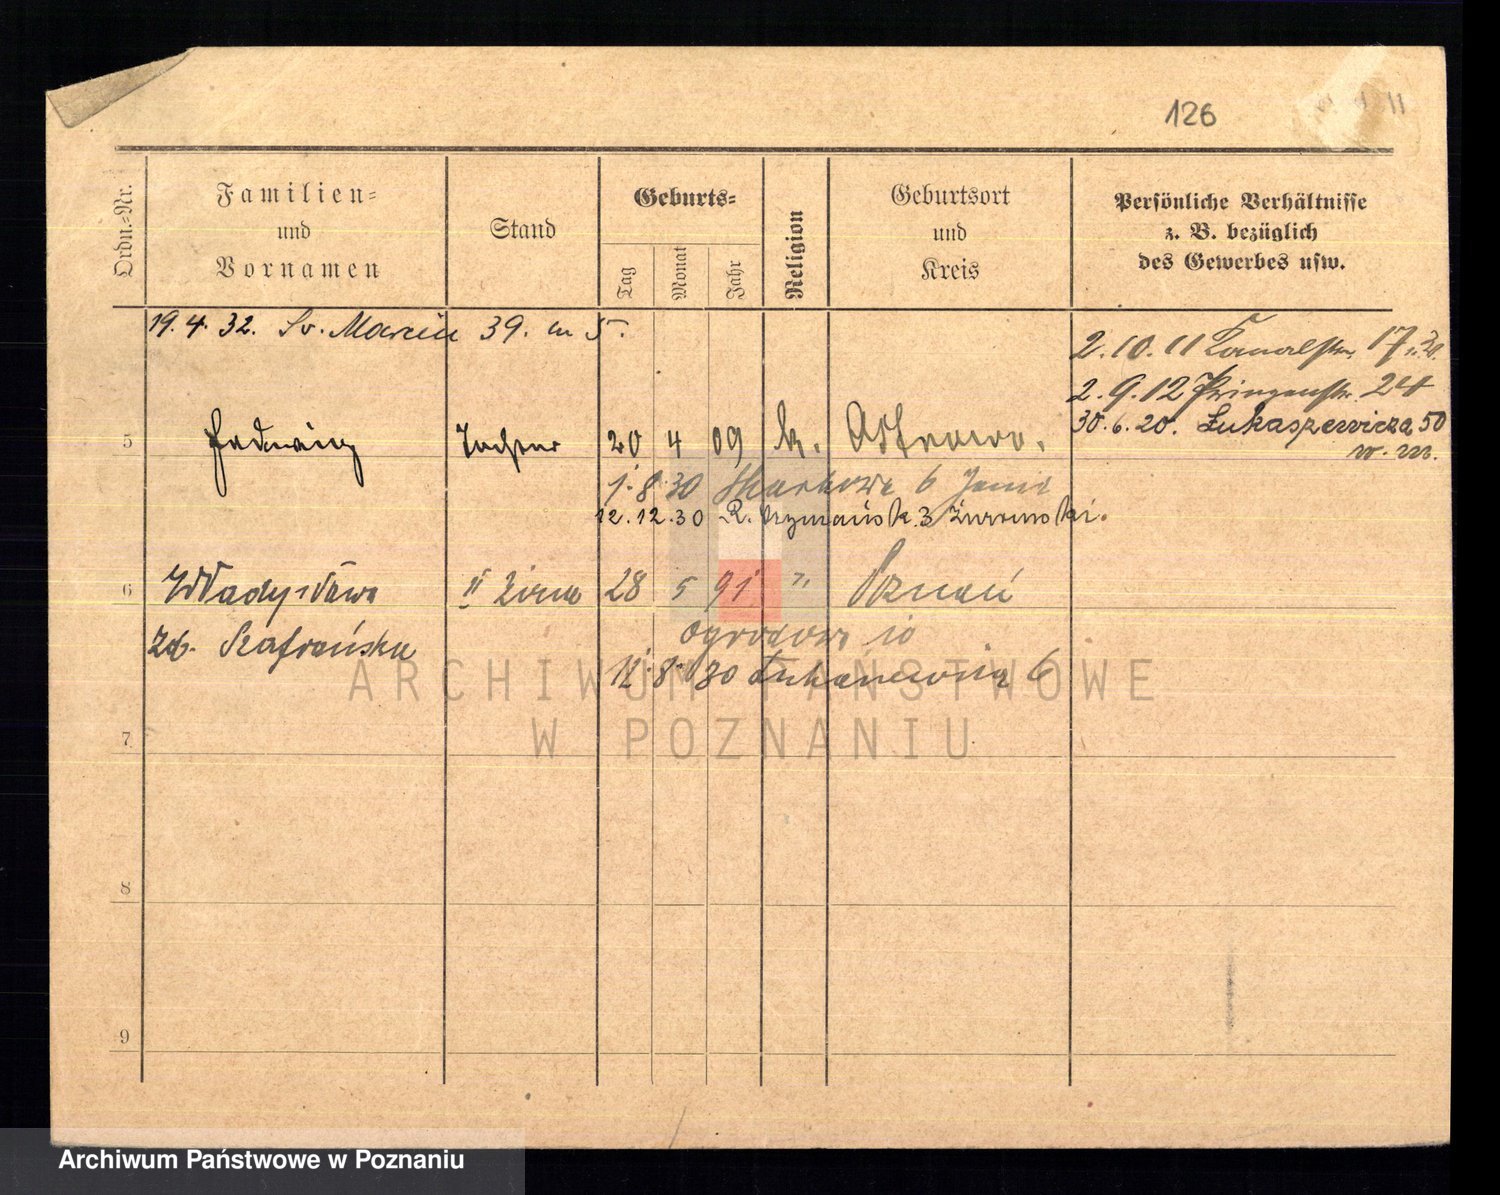 126
Ordn.-Nr.
Familien-
und
Vornamen
Stand
Geburts-
Tag
Monat
Jahr
Religion
Geburtsort
und
Kreis
Persönliche Verhältnisse
z. B. bezüglich
des Gewerbes usw.
19. 4. 32. Sv. Marcin 39. m 5.
2. 10. 11 Kanalstr. 17
2. 9. 12 Prinzenstr. 24
30. 6. 20. Łukaszewicza 50
w. m.
5 Hedwig Tochter 20 4 09 k. Ostrowo.
1. 8. 30
12. 12. 30 3
6 Władysława II żona 28 5 91 " Poznań
Ogrodowa 10
Szafrańska
12. 8. 30 6
7
8
9
ARCHIWUM PAŃSTWOWE
W POZNANIU
Archiwum Państwowe w Poznaniu